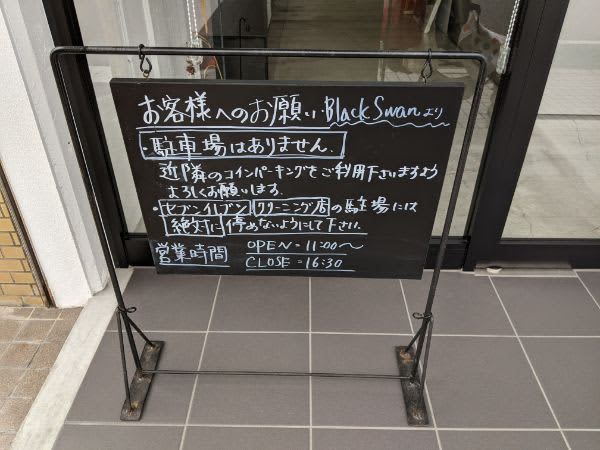 お客様へのお願い Black Swanより
・駐車場はありません.
近隣のコインパーキングをご利用下さいますよう
よろしくお願いします.
・セブンイレブン クリーニング店の駐車場には
絶対に停めないようにして下さい.
営業時間 OPEN=11:00〜
CLOSE=16:30